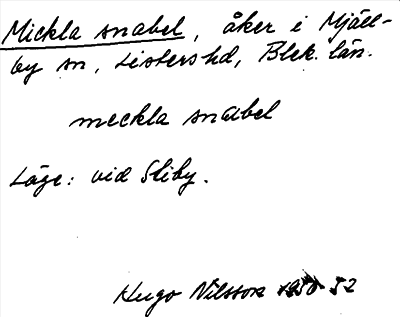 Mickla snabel, åker i Mjäll-
by sn, Listers hd, Blek. län.
meckla snabel
Läge: vid Sliby.
Hugo Nilsson 52